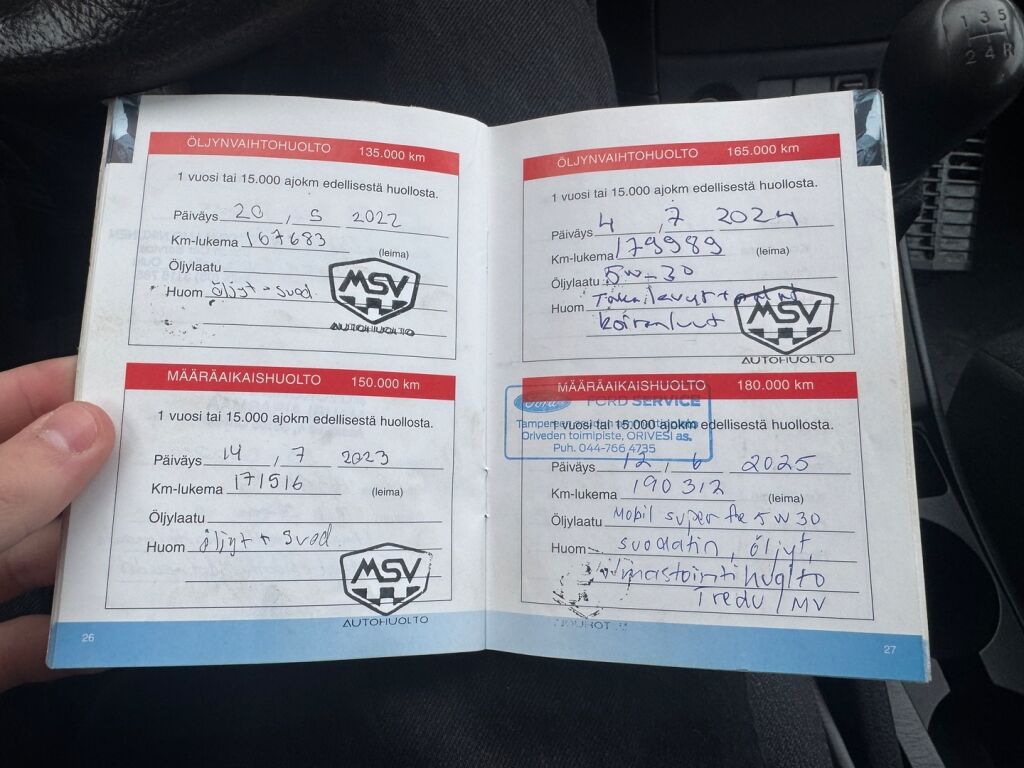 ÖLJYNVAIHTOHUOLTO 135.000 km
1 vuosi tai 15.000 ajokm edellisestä huollosta.
Päiväys 20 , 5 2022
Km-lukema 167683
(leima)
Öljylaatu
Huom öljyt + suod.
MSV
AUTOHUOLTO
MÄÄRÄAIKAISHUOLTO 150.000 km
1 vuosi tai 15.000 ajokm edellisestä huollosta.
Päiväys 14 , 7 2023
Km-lukema 171516
(leima)
Öljylaatu
Huom öljyt + suod.
MSV
AUTOHUOLTO
26
ÖLJYNVAIHTOHUOLTO 165.000 km
1 vuosi tai 15.000 ajokm edellisestä huollosta.
Päiväys 4 , 7 2024
Km-lukema 179989
(leima)
Öljylaatu 5W-30
Huom Takailevyt +
koiranluut
MSV
AUTOHUOLTO
MÄÄRÄAIKAISHUOLTO 180.000 km
Ford FORD SERVICE
1 vuosi tai 15.000 ajokm edellisestä huollosta.
Tampereen seudun
Oriveden toimipiste, ORIVESI as.
Puh. 044-766 4735
Päiväys 12 , 6 2025
Km-lukema 190312
(leima)
Öljylaatu Mobil super fe 5W30
Huom suodatin, öljyt,
ilmastointihuolto
Tredu / MV
27
1 3 5
2 4 R